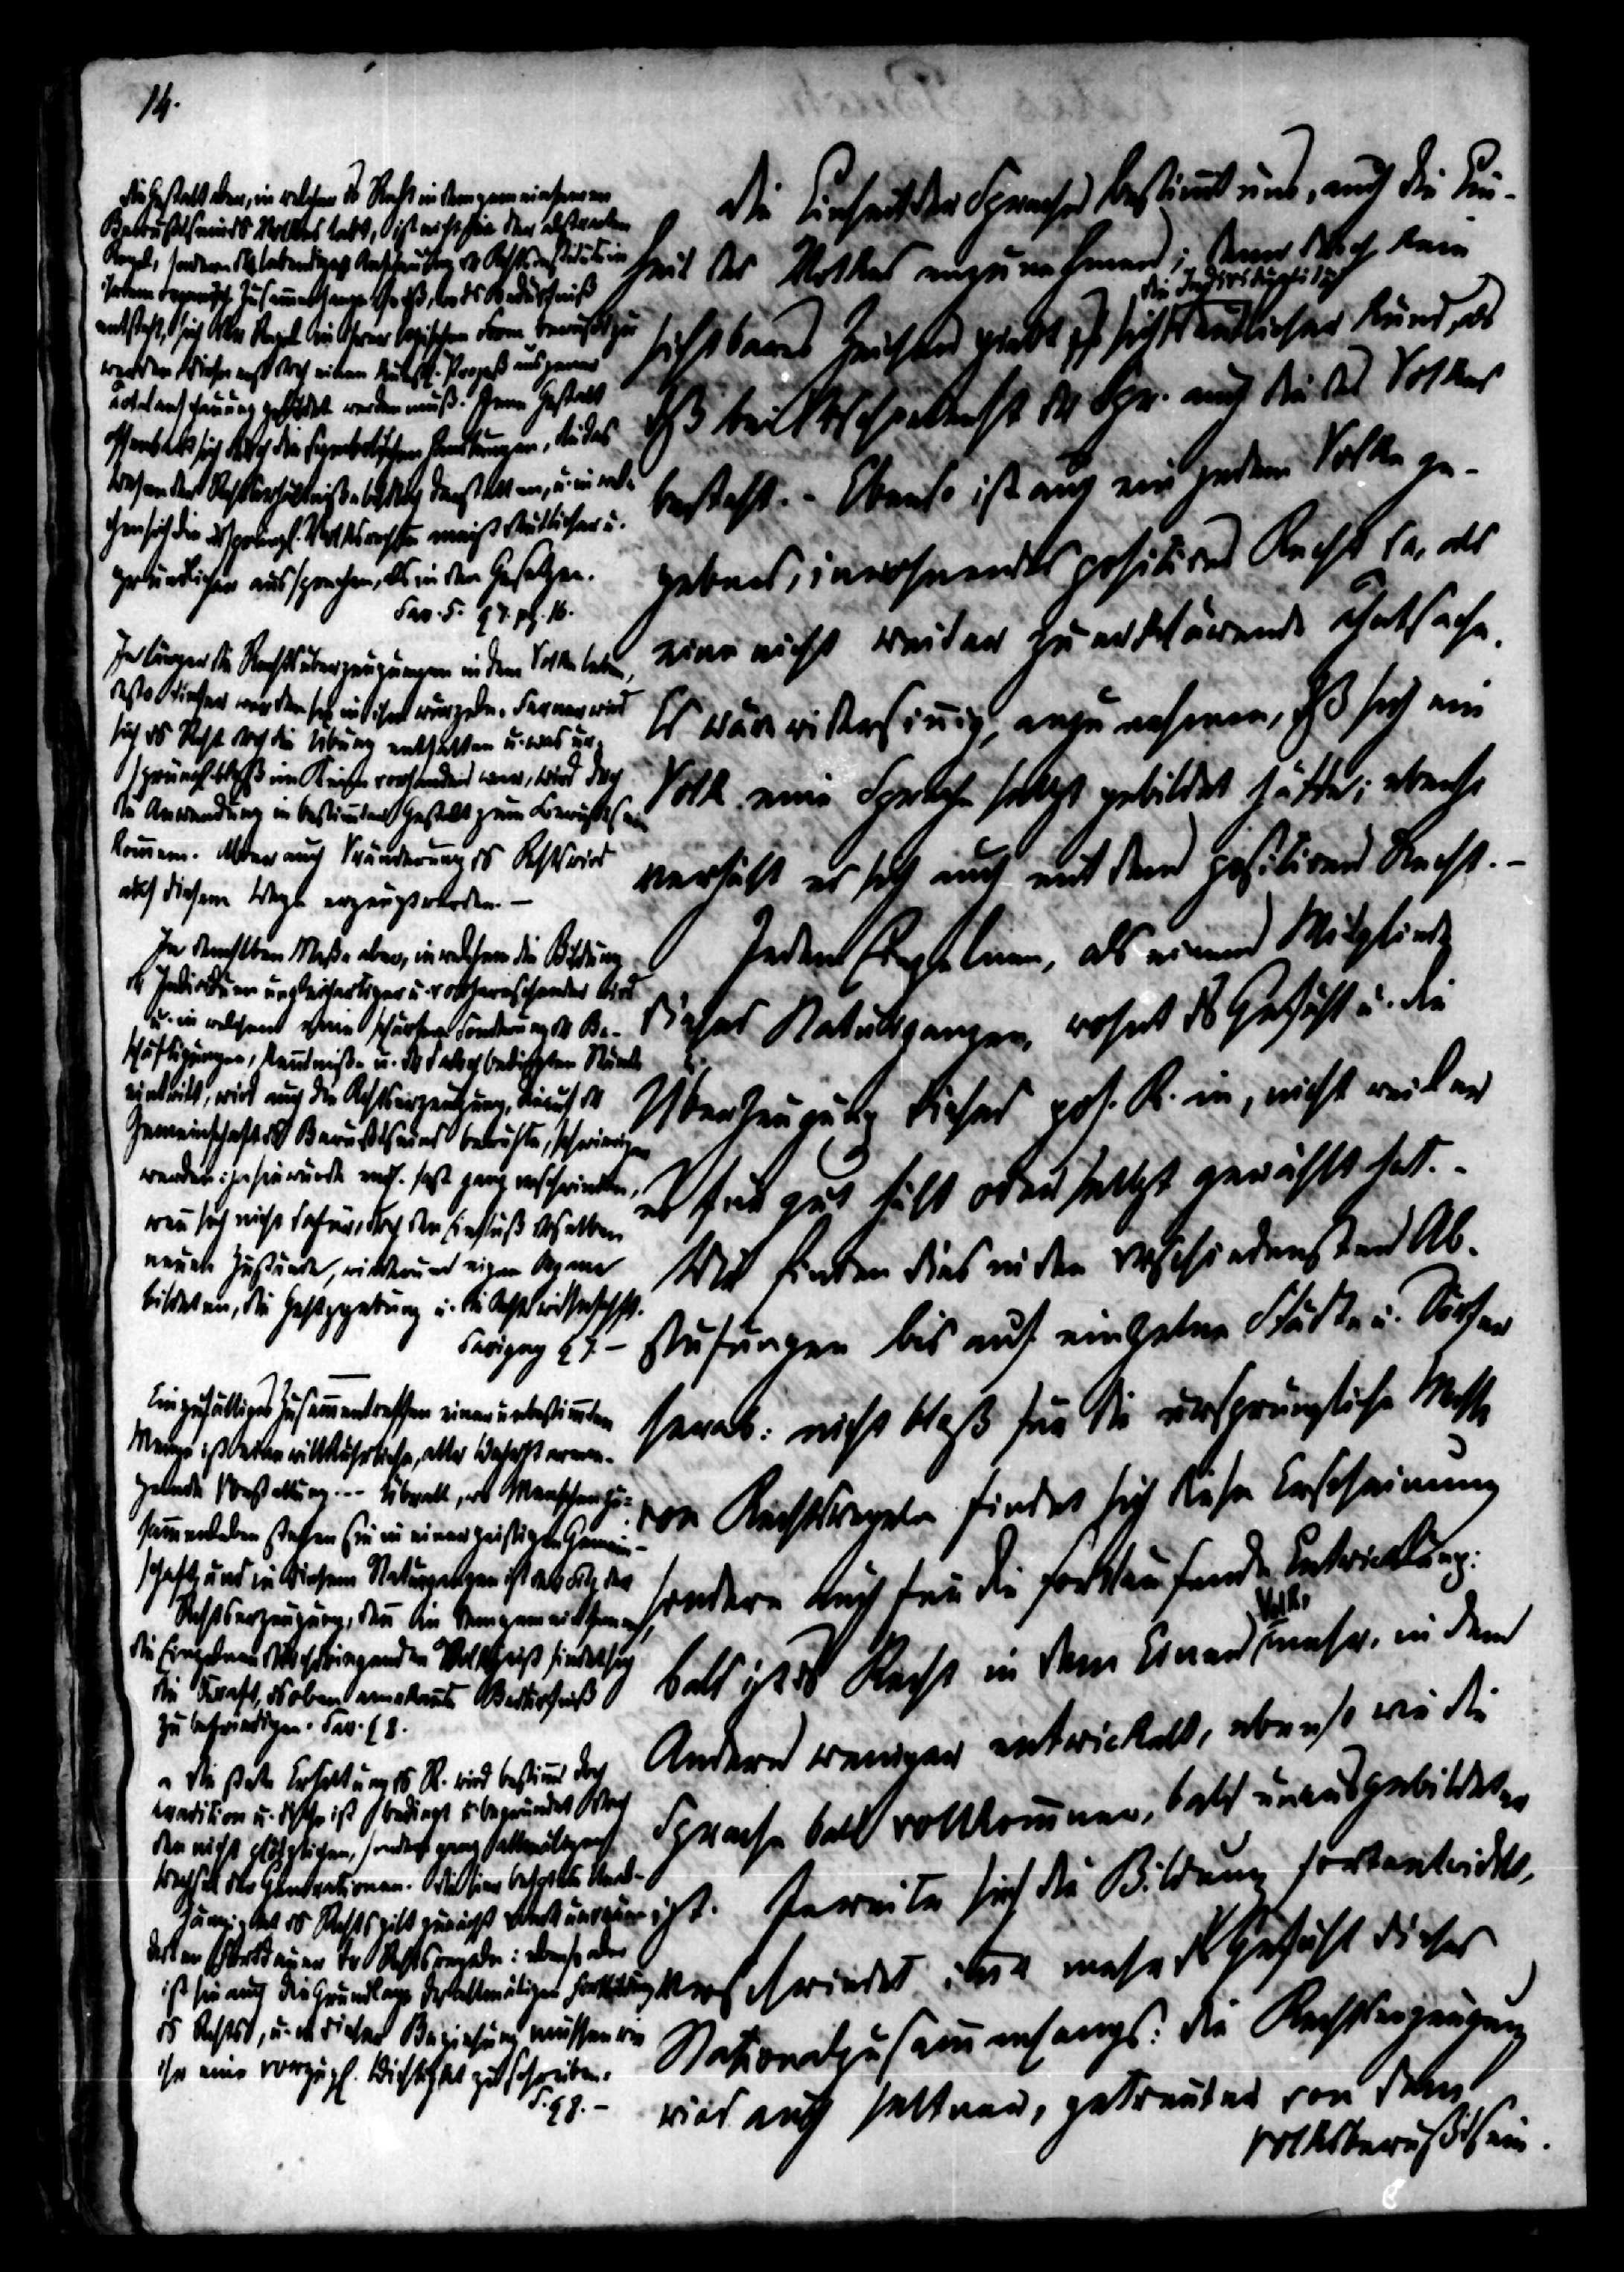 14.
Die Gestalt aber, in welcher ds Recht in dem gemeinsamen
Bewußtsein ds Volkes lebt, ist nicht die der abstracten
Regel, sondern die lebendige Anschauung der Rechtsinstitute in
ihrem organisch. Zusammenhange, so daß, wo ds Bedürfniß
entsteht, sich der Regel in ihrer logischen Form bewußt zu
werden, diese erst dch einen Prozeß aus jener
Totalanschauung gebildet werden muß. Jene Gestalt
offenbart sich dch die symbolischen Handlungen, die das
Wesen der Rechtsverhältniße bildlich darstellen, u. in wel-
chen sich die ursprüngl. Volksrechte meist deutlicher u.
gründlicher aussprechen, als in den Gesetzen.
Sav. S. § 7. pg. 16.
Je länger die Rechtsüberzeugungen in dem Volke leben,
desto tiefer werden sie in ihm wurzeln. Ferner wird
sich ds Recht dch die Übung entfalten u. was ur-
sprüngl. bloß im Keime vorhanden war, wird dch
die Anwendung in bestimmter Gestalt zum Bewußtsein
kommen. Aber auch Veränderung ds Rechts wird
auf diesem Wege erzeugt werden. —
In demselben Maße aber, in welchem die Bildung
der Individuen ungleichartiger u. vorherrschender wird
u. in welchem eine schärfere Sonderung der Be-
schäftigungen, Kentniße u. der dadch bedingten Stände
eintritt, wird auch die Rechtserzeugung, die auf der
Gemeinschaft ds Bewußtseins beruhte, schwieriger
werden; ja sie würde endl. fast ganz verschwinden,
wenn sich nicht dafür, dch den Einfluß derselben
neuen Zustände, wiederum eigne Organe
bildeten, die Gesetzgebung u. die Rechtswissenschft.
Savigny § 7. —
Ein zufälliges Zusammentreffen einer unbestimmten
Menge ist eine willkührliche, aller Wahrheit erman-
gelnde Vorstellung. -- Überall, wo Menschen zu-
sammenleben stehen sie in einer geistigen Gemein-
schaft, und in diesem Naturganzen ist der Sitz der
Rechtserzeugung, denn in dem gemeinsamen,
die Einzelnen durchdringenden Volksgeist findet sich
die Kraft, ds oben anerkante Bedürfniß
zu befriedigen. Sav. § 8.
Die stete Erhaltung ds R. wird bestimmt dch
Tradition u. diese ist bedingt u. begründet dch
den nicht plötzlichen, sondern ganz allmäligen
Wechsel der Generationen. Die hier behauptete Unab-
hängigkeit ds Rechts gilt zunächst dem unverän-
derten Fortdauern der Rechtsregeln: ebenso aber
ist sie auch die Grundlage der allmäligen Fortbildung
ds Rechts, u. in dieser Beziehung müssen wir
ihr eine vorzügl. Wichtigkeit zuschreiben.
S. § 8. —
Die Einheit der Sprache bestimmt uns, auch die Ein-
heit des Volkes anzunehmen; denn dch kein
sichtbares Zeichen giebt sich die Individualität deutlicher kund, als
daß bei Verschiedenheit der Spr. auch die des Volkes
besteht. - Ebenso ist auch ein jedem Volke ge-
gebnes, inwohnendes positives Recht da, als
eine nicht weiter zu erklärende Thatsache.
Es wäre widersinnig, anzunehmen, daß sich ein
Volk eine Sprache selbst gebildet hätte; ebenso
verhält es sich auch mit dem positiven Recht. —
Jedem Einzelnen, als einem Mitgliede
dieses Naturganzen, wohnt ds Gefühl u. die
Überzeugung dieses pos. R. in, nicht weil er
es für gut hält oder selbst gewählt hat. -
Wir finden dies in den verschiedensten Ab-
stufungen bis auf einzelne Städte u. Dörfer
herab: nicht bloß für die ursprüngliche Masse
von Rechtsregeln findet sich diese Erscheinung
sondern auch für die fortlaufende Entwicklung:
bald ist ds Recht in dem Einen Volke mehr, in dem
Andern weniger entwickelt, ebenso wie die
Sprache bald vollkommner, bald unausgebildeter
ist. Jeweiter sich die Bildung fortentwickelt,
verschwindet immer mehr ds Gefühl dieses
Nationalzusammenhangs: die Rechtserzeugung
wird auch seltner, getrennter von dem
Volksbewußtsein.